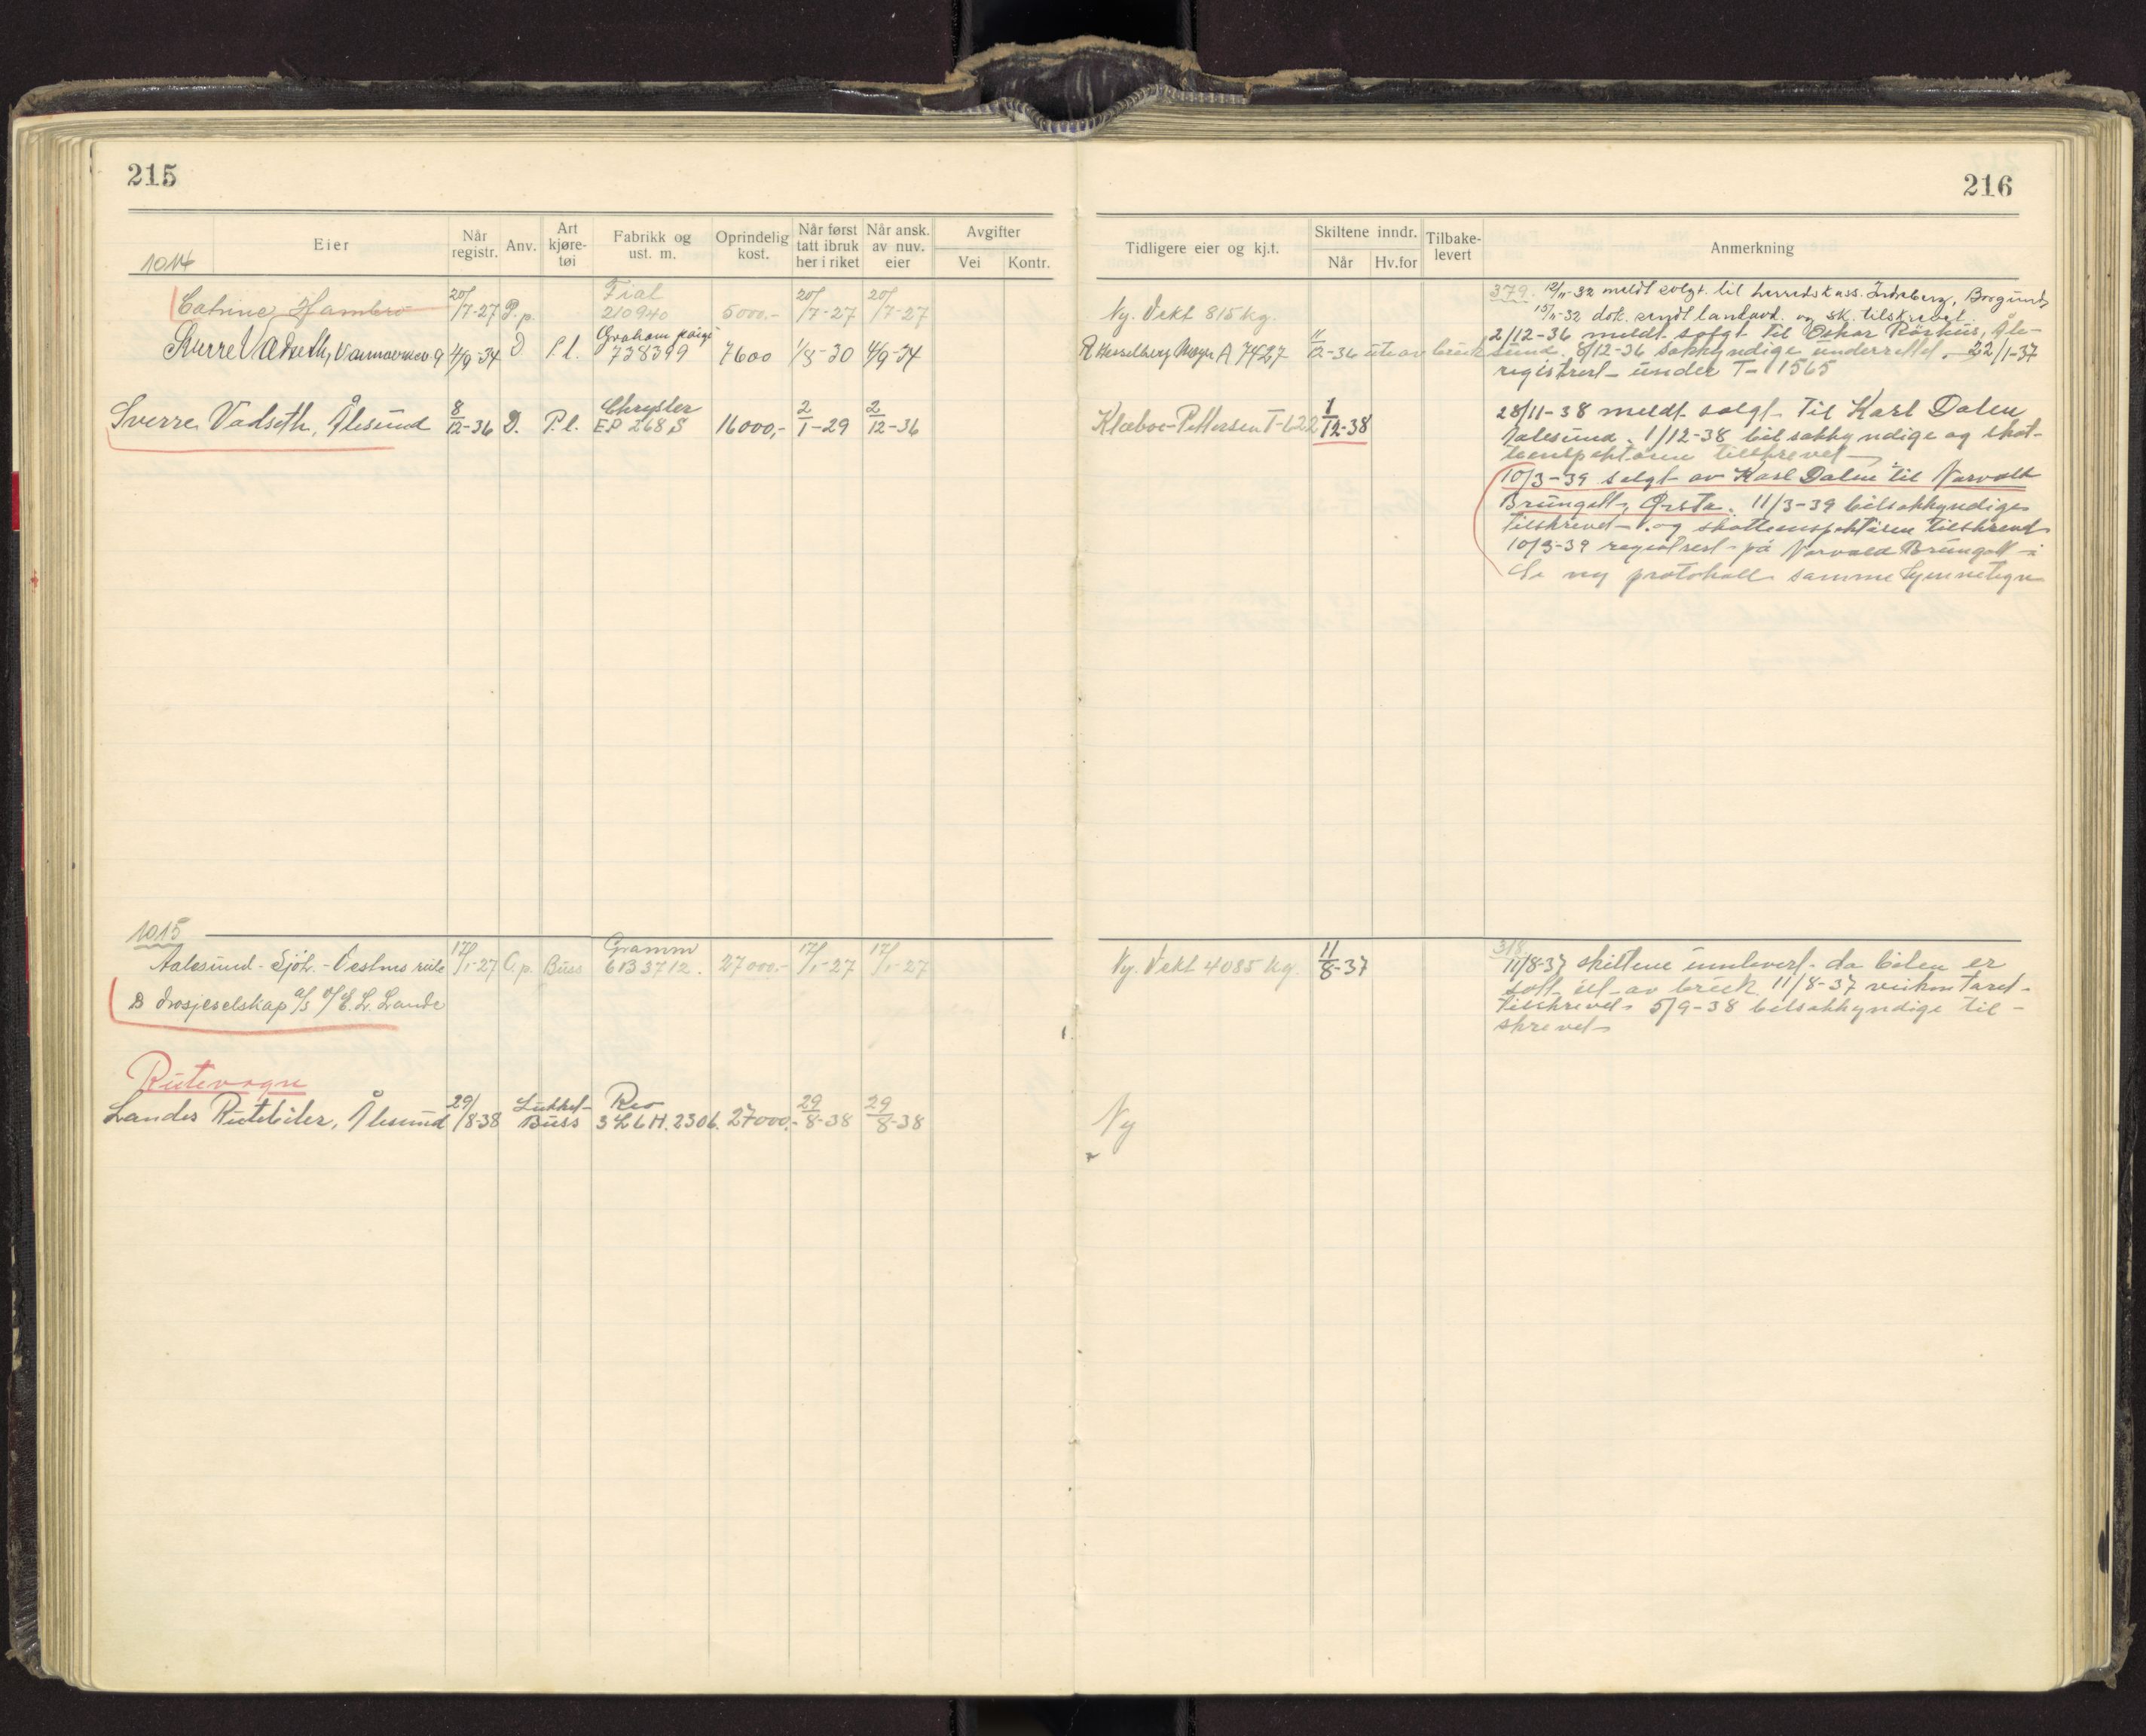 215
Eier
Når registr.
Anv.
Art kjøre-tøi
Fabrikk og ust. m.
Oprindelig kost.
Når først tatt ibruk her i riket
Når ansk. av nuv. eier
Avgifter
Vei
Kontr.
1014
Catrine Hambro 20/7-27 P.p. Fiat 210940 5000.- 20/7-27 20/7-27
Sverre Vadseth, 4/9-34 D P.l. Graham Paige 738399 7600 1/8-30 4/9-34
Sverre Vadseth, Ålesund 8/12-36 D. P.l. Chrysler EP 268 S 16000,- 2/1-29 2/12-36
1015
Aalesund - Sjöh. - Vestnes rute 17/1-27 Buss Gramm 6B3712. 27000.- 17/1-27 17/1-27
B drosjeselskap a/s v/ E. L. Lande
Rutevogn
Landes Rutebiler, Ålesund 29/8-38 Lukket- Buss Reo 3L6H.2306. 27000.- 29/8-38 29/8-38
216
Tidligere eier og kj.t.
Skiltene inndr.
Når
Hv.for
Tilbake-levert
Anmerkning
Ny. Vekt 815 kg.
379. 12/11-32 meldt solgt til herredskass. Indreberg, Borgund
15/11-32 dok. sendt og sk. tilskrevet.
R Hesselberg Meyer A 7427 11/12-36 ute av bruk
2/12-36 meldt solgt til Oskar Röshus, Åle-
sund. 8/12-36 sakkyndige underrettet. 22/1-37
registrert under T-1565
Klæboe-Pettersen T-622 1/12-38
28/11-38 meldt solgt til Karl Dalen
Aalesund. 1/12-38 bilsakkyndige og skat-
teinspektøren tilskrevet
10/3-39 solgt av Karl Dalen til Norvald
Brungott, Ørsta. 11/3-39 bilsakkyndige
tilskrevet og skatteinspektøren tilskrevet
10/3-39 registrert på Norvald Brungott
Se ny protokoll samme kjennetegn
Ny. Vekt 4085 kg. 11/8-37
318.
11/8-37 skiltene innlevert da bilen er
satt ut av bruk. 11/8-37 veikontoret
tilskrevet 5/9-38 bilsakkyndige til-
skrevet
Ny